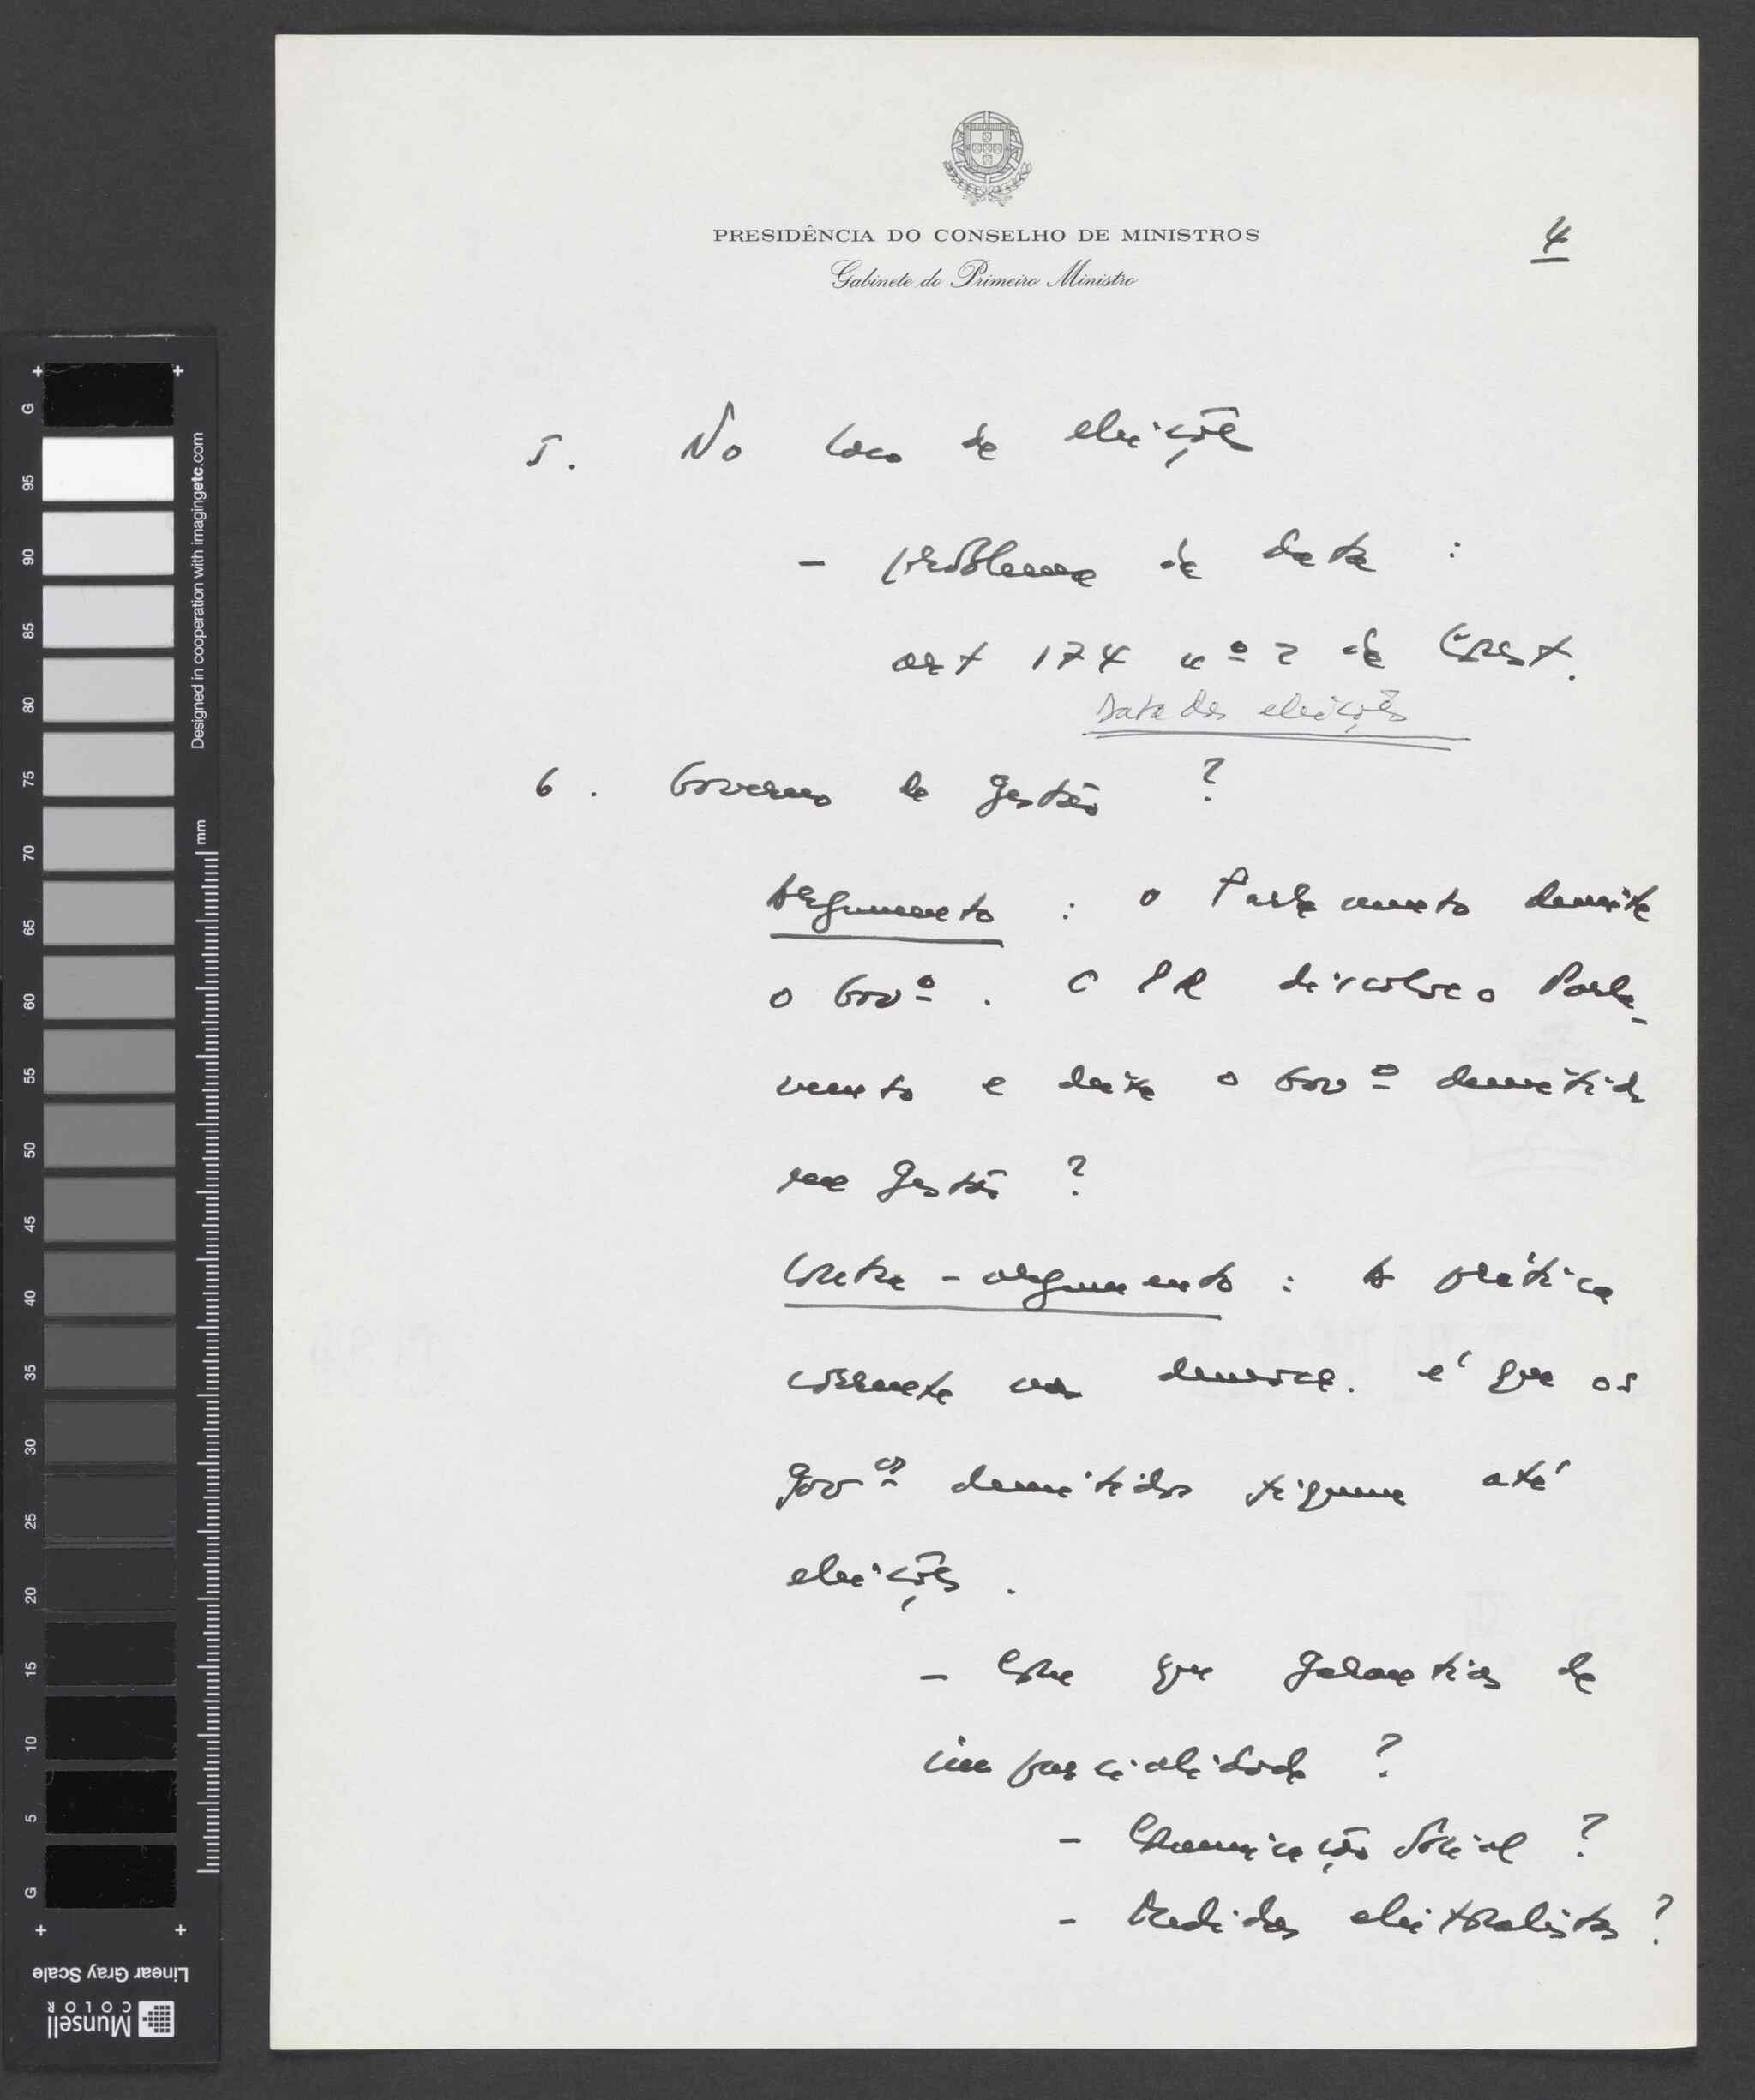 PRESIDÊNCIA DO CONSELHO DE MINISTROS
Gabinete do Primeiro Ministro
4
5. No caso de eleições
- problema da data :
art 174 nº 2 da Const.
Data das eleições
6. Governo de gestão ?
Argumento : o Parlamento demite
o Govº. O PR dissolve o Parla-
mento e deixa o Govº demitido
em gestão ?
Contra-argumento : A prática
corrente nas democ. é que os
govos demitidos fiquem até
eleições.
- Com que garantias de
imparcialidade ?
- Comunicação Social ?
- Medidas eleitoralistas ?
G
95
90
85
80
75
70
65
60
55
50
45
40
35
30
25
20
15
10
5
G
Designed in cooperation with imagingetc.com
mm
Linear Gray Scale
Munsell
COLOR